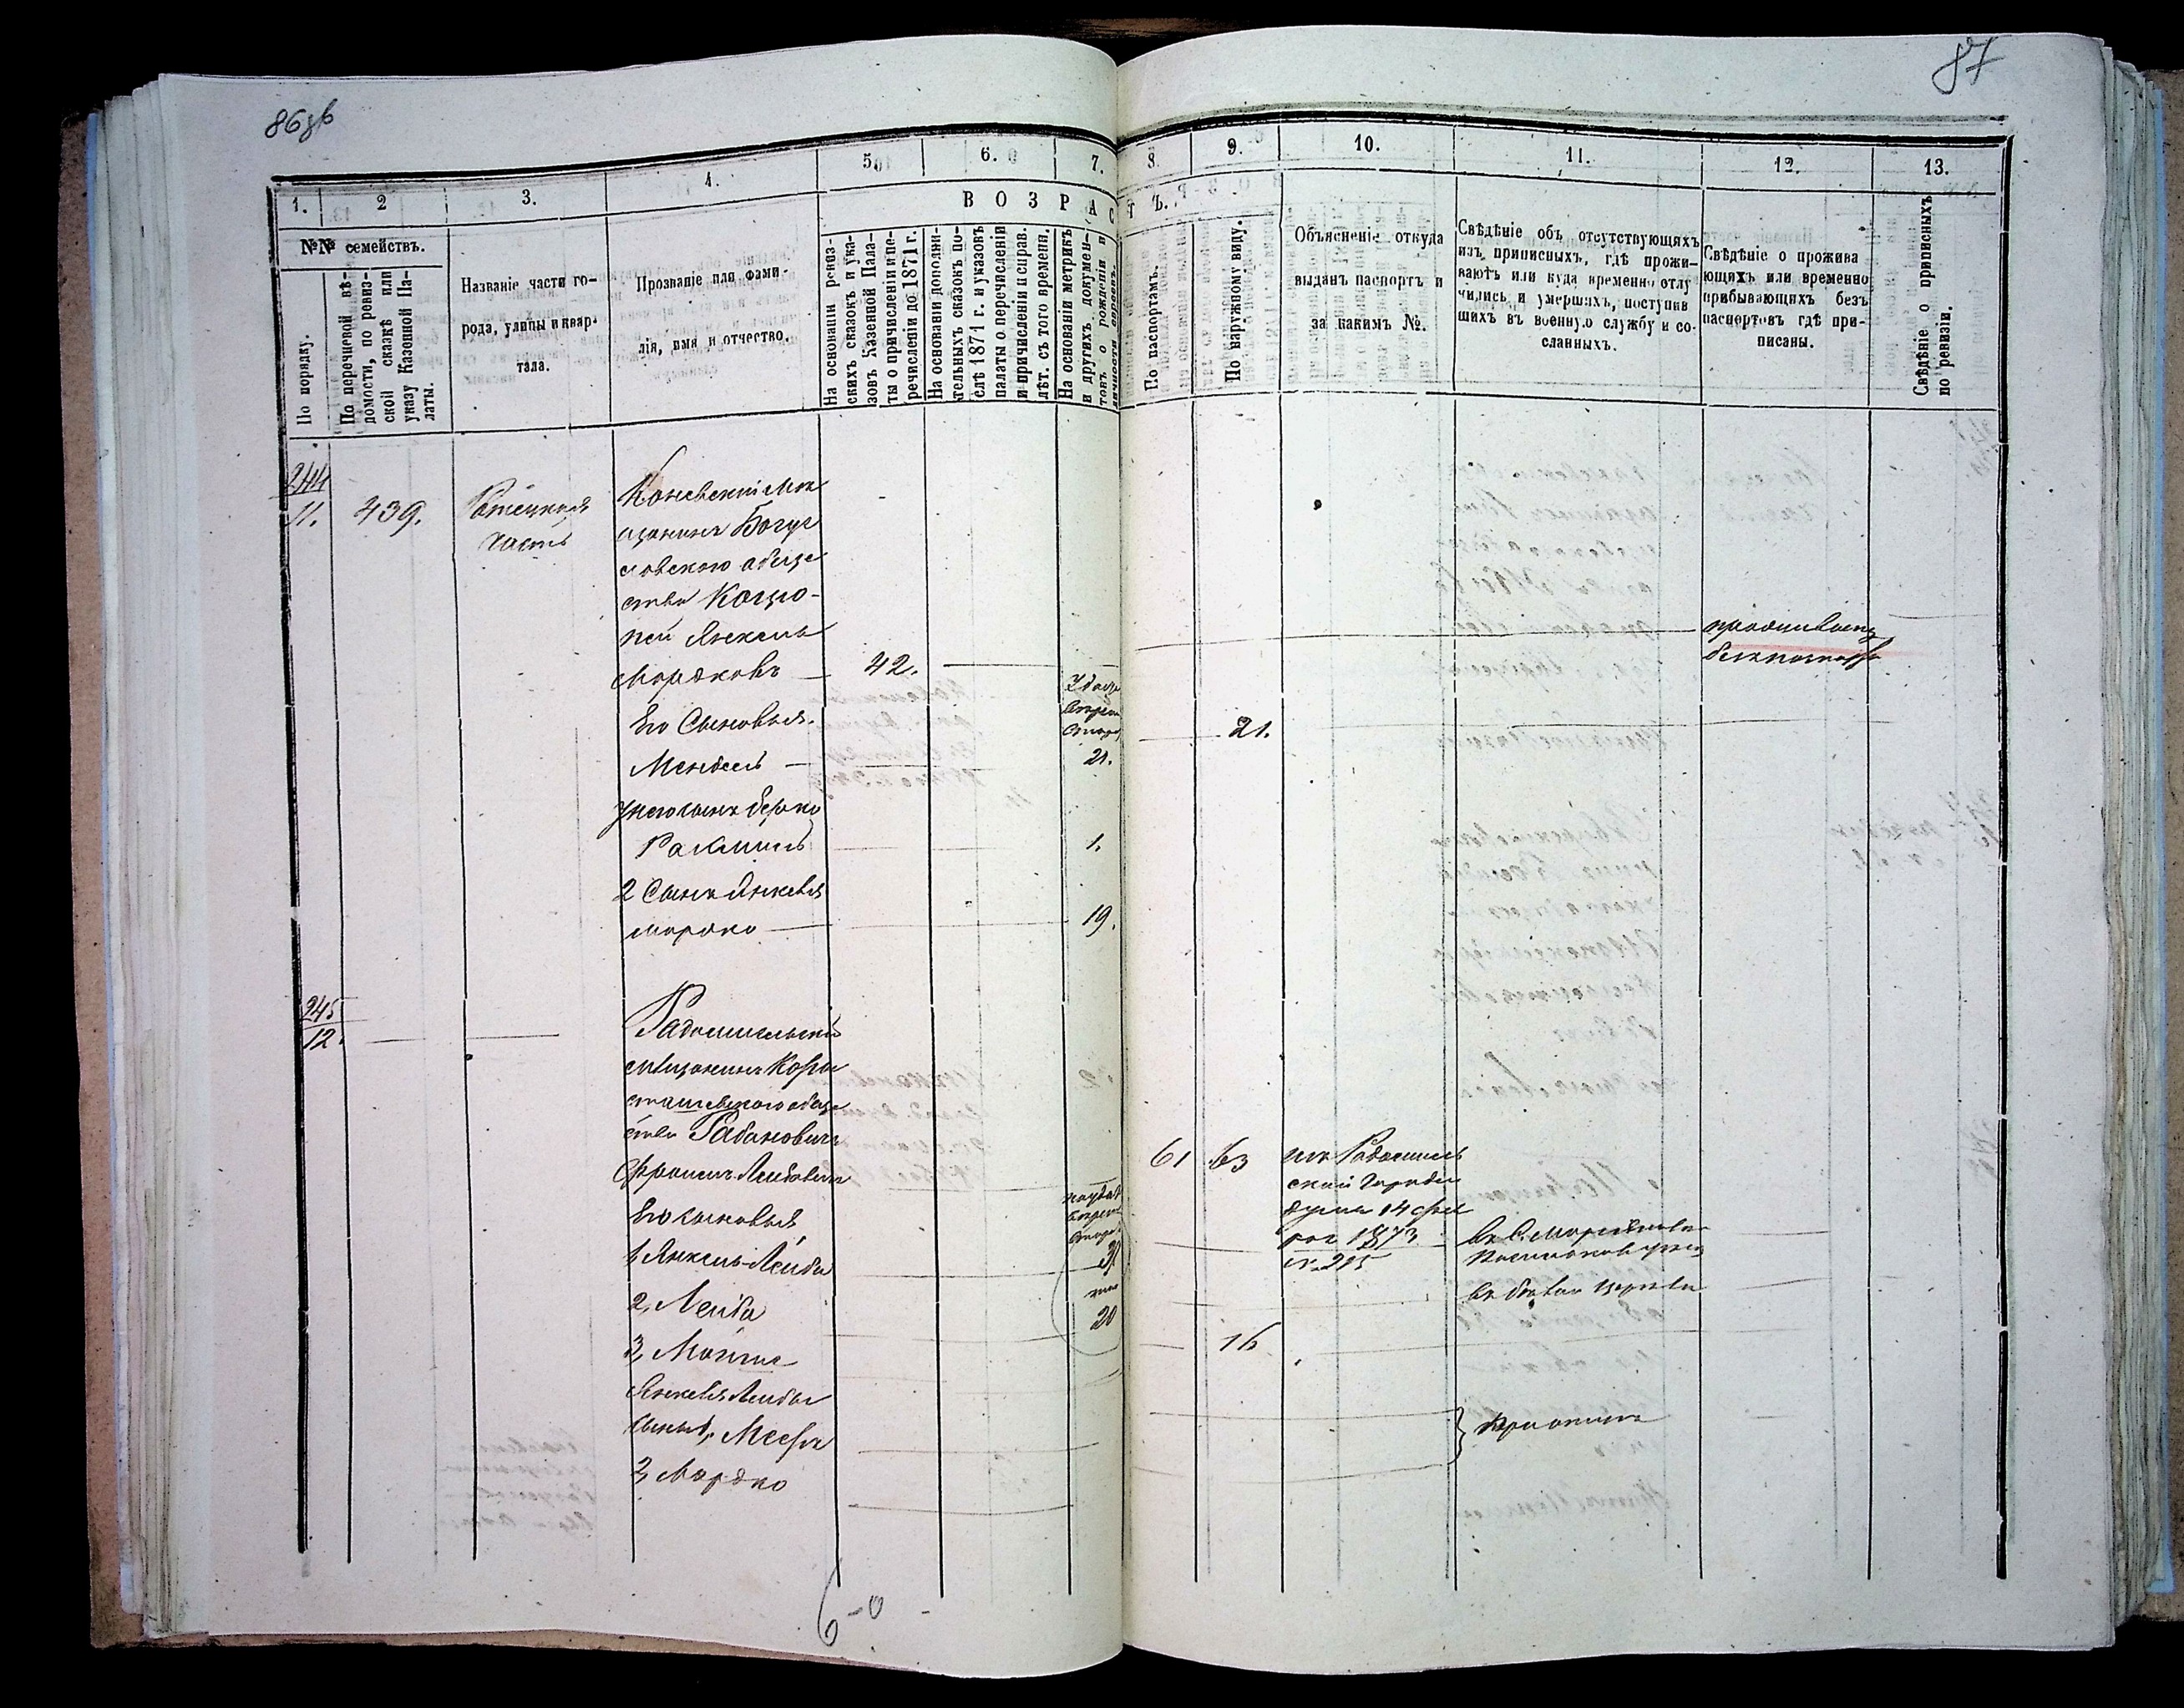 86об
87
1.
2
3.
4.
5
6.
7.
8.
9.
10.
11.
12.
13.
ВОЗРАСТЪ.
№№ семействъ.
По порядку.
По перечневой вѣ-
домости, по ревиз-
ской сказкѣ или
указу Казенной Па-
латы.
Названіе части го-
рода, улицы и квар-
тала.
Прозваніе или фами-
лія, имя и отчество.
На основаніи ревиз-
скихъ сказокъ и ука-
зовъ Казенной Пала-
ты о причисленіи и пе-
речисленіи до 1871 г.
На основаніи дополни-
тельныхъ сказокъ по-
слѣ 1871 г. и указовъ
палаты о перечисленіи
и причисленіи и справ.
лѣт. съ того времени.
На основаніи метрикъ
и другихъ докумен-
товъ о рожденіи и
личности евреевъ.
По паспортамъ.
По наружному виду.
Объясненіе откуда
выданъ паспортъ и
за какимъ №.
Свѣдѣніе объ отсутствующихъ
изъ приписныхъ, гдѣ прожи-
ваютъ или куда временно отлу
чились и умершихъ, поступив
шихъ въ военную службу и со-
сланныхъ.
Свѣдѣніе о прожива
ющихъ или временно
прибывающихъ безъ
паспортовъ гдѣ при-
писаны.
Свѣдѣніе о приписныхъ
по ревизіи.
244
11.
439.
часть
Каневскій мѣ
щанинъ Богус
лавскаго обще
ства
Янкель
Мордковъ
42.
проживаетъ
Его Сыновья
Мендель
21.
21.
у него сынъ Берко
Рахмиль
1.
2 Сынъ Янкеля
Мордко
19.
245
12.
Радомысльскій
мѣщанинъ Коро
стышевскаго обще
ства Рабиновичъ
Фроимъ Лейбовичъ
61
63
изъ Радомысль
ской Городск
Думы 14 фев
рал 1873
№ 215
Его сыновья
1 Янкель-Лейба
2, Лейба
20
3, Мошко
16
Янкеля Лейбы
сыны 1, Мееръ
2, Мордко
при отцѣ
6-0